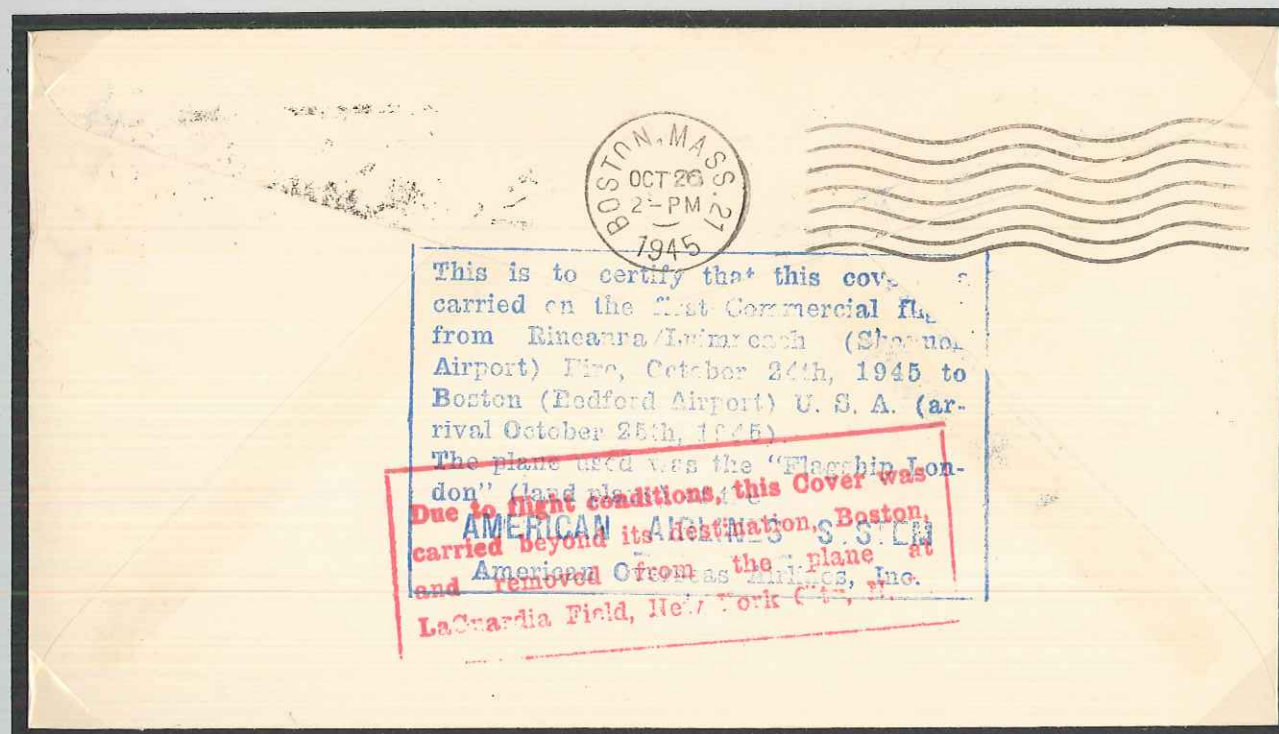 BOSTON, MASS. 21
OCT 26
2 - PM
1945
This is to certify that this
carried on the first Commercial
from Rineanna/Luimneach (Shannon
Airport) Eire, October 24th, 1945 to
Boston (Bedford Airport) U. S. A. (ar-
rival October 25th, 1945).
The plane used was the “Flagship Lon-
don” (land
AMERICAN AIRLINES SYSTEM
American Overseas Airlines, Inc.
Due to flight conditions, this Cover was
carried beyond its destination, Boston,
and removed from the plane at
LaGuardia Field, New York City,